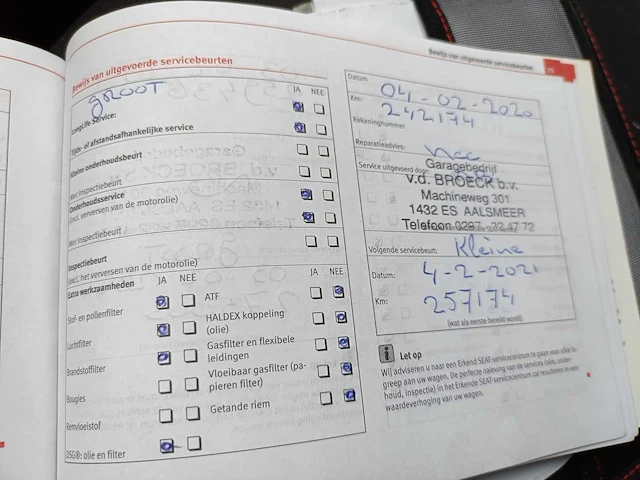 Bewijs van uitgevoerde servicebeurten
GROOT
JA NEE
LongLife Service:
Tijds- of afstandsafhankelijke service
Kleine onderhoudsbeurt
Met inspectiebeurt
Onderhoudsservice
(incl. verversen van de motorolie)
Met inspectiebeurt
Inspectiebeurt
(excl. het verversen van de motorolie)
Extra werkzaamheden
JA NEE
JA NEE
Stof- en pollenfilter
Luchtfilter
Brandstoffilter
Bougies
Remvloeistof
DSG®: olie en filter
ATF
HALDEX koppeling
(olie)
Gasfilter en flexibele
leidingen
Vloeibaar gasfilter (pa-
pieren filter)
Getande riem
Bewijs van uitgevoerde servicebeurten
Datum
04-02-2020
Km:
242174
Rekeningnummer
Reparatieadvies:
Nee
Service uitgevoerd door:
Garagebedrijf
v.d. BROECK b.v.
Machineweg 301
1432 ES AALSMEER
Telefoon 0297 - 32 47 72
Volgende servicebeurt: Kleine
Datum:
4-2-2021
Km:
257174
(wat als eerste bereikt wordt)
Let op
Wij adviseren u naar een Erkend SEAT-servicecentrum te gaan voor elke in-
greep aan uw wagen. De perfecte naleving van de services (olie, onder-
houd, inspectie) in het Erkende SEAT-servicecentrum zal resulteren in een
waardeverhoging van uw wagen.